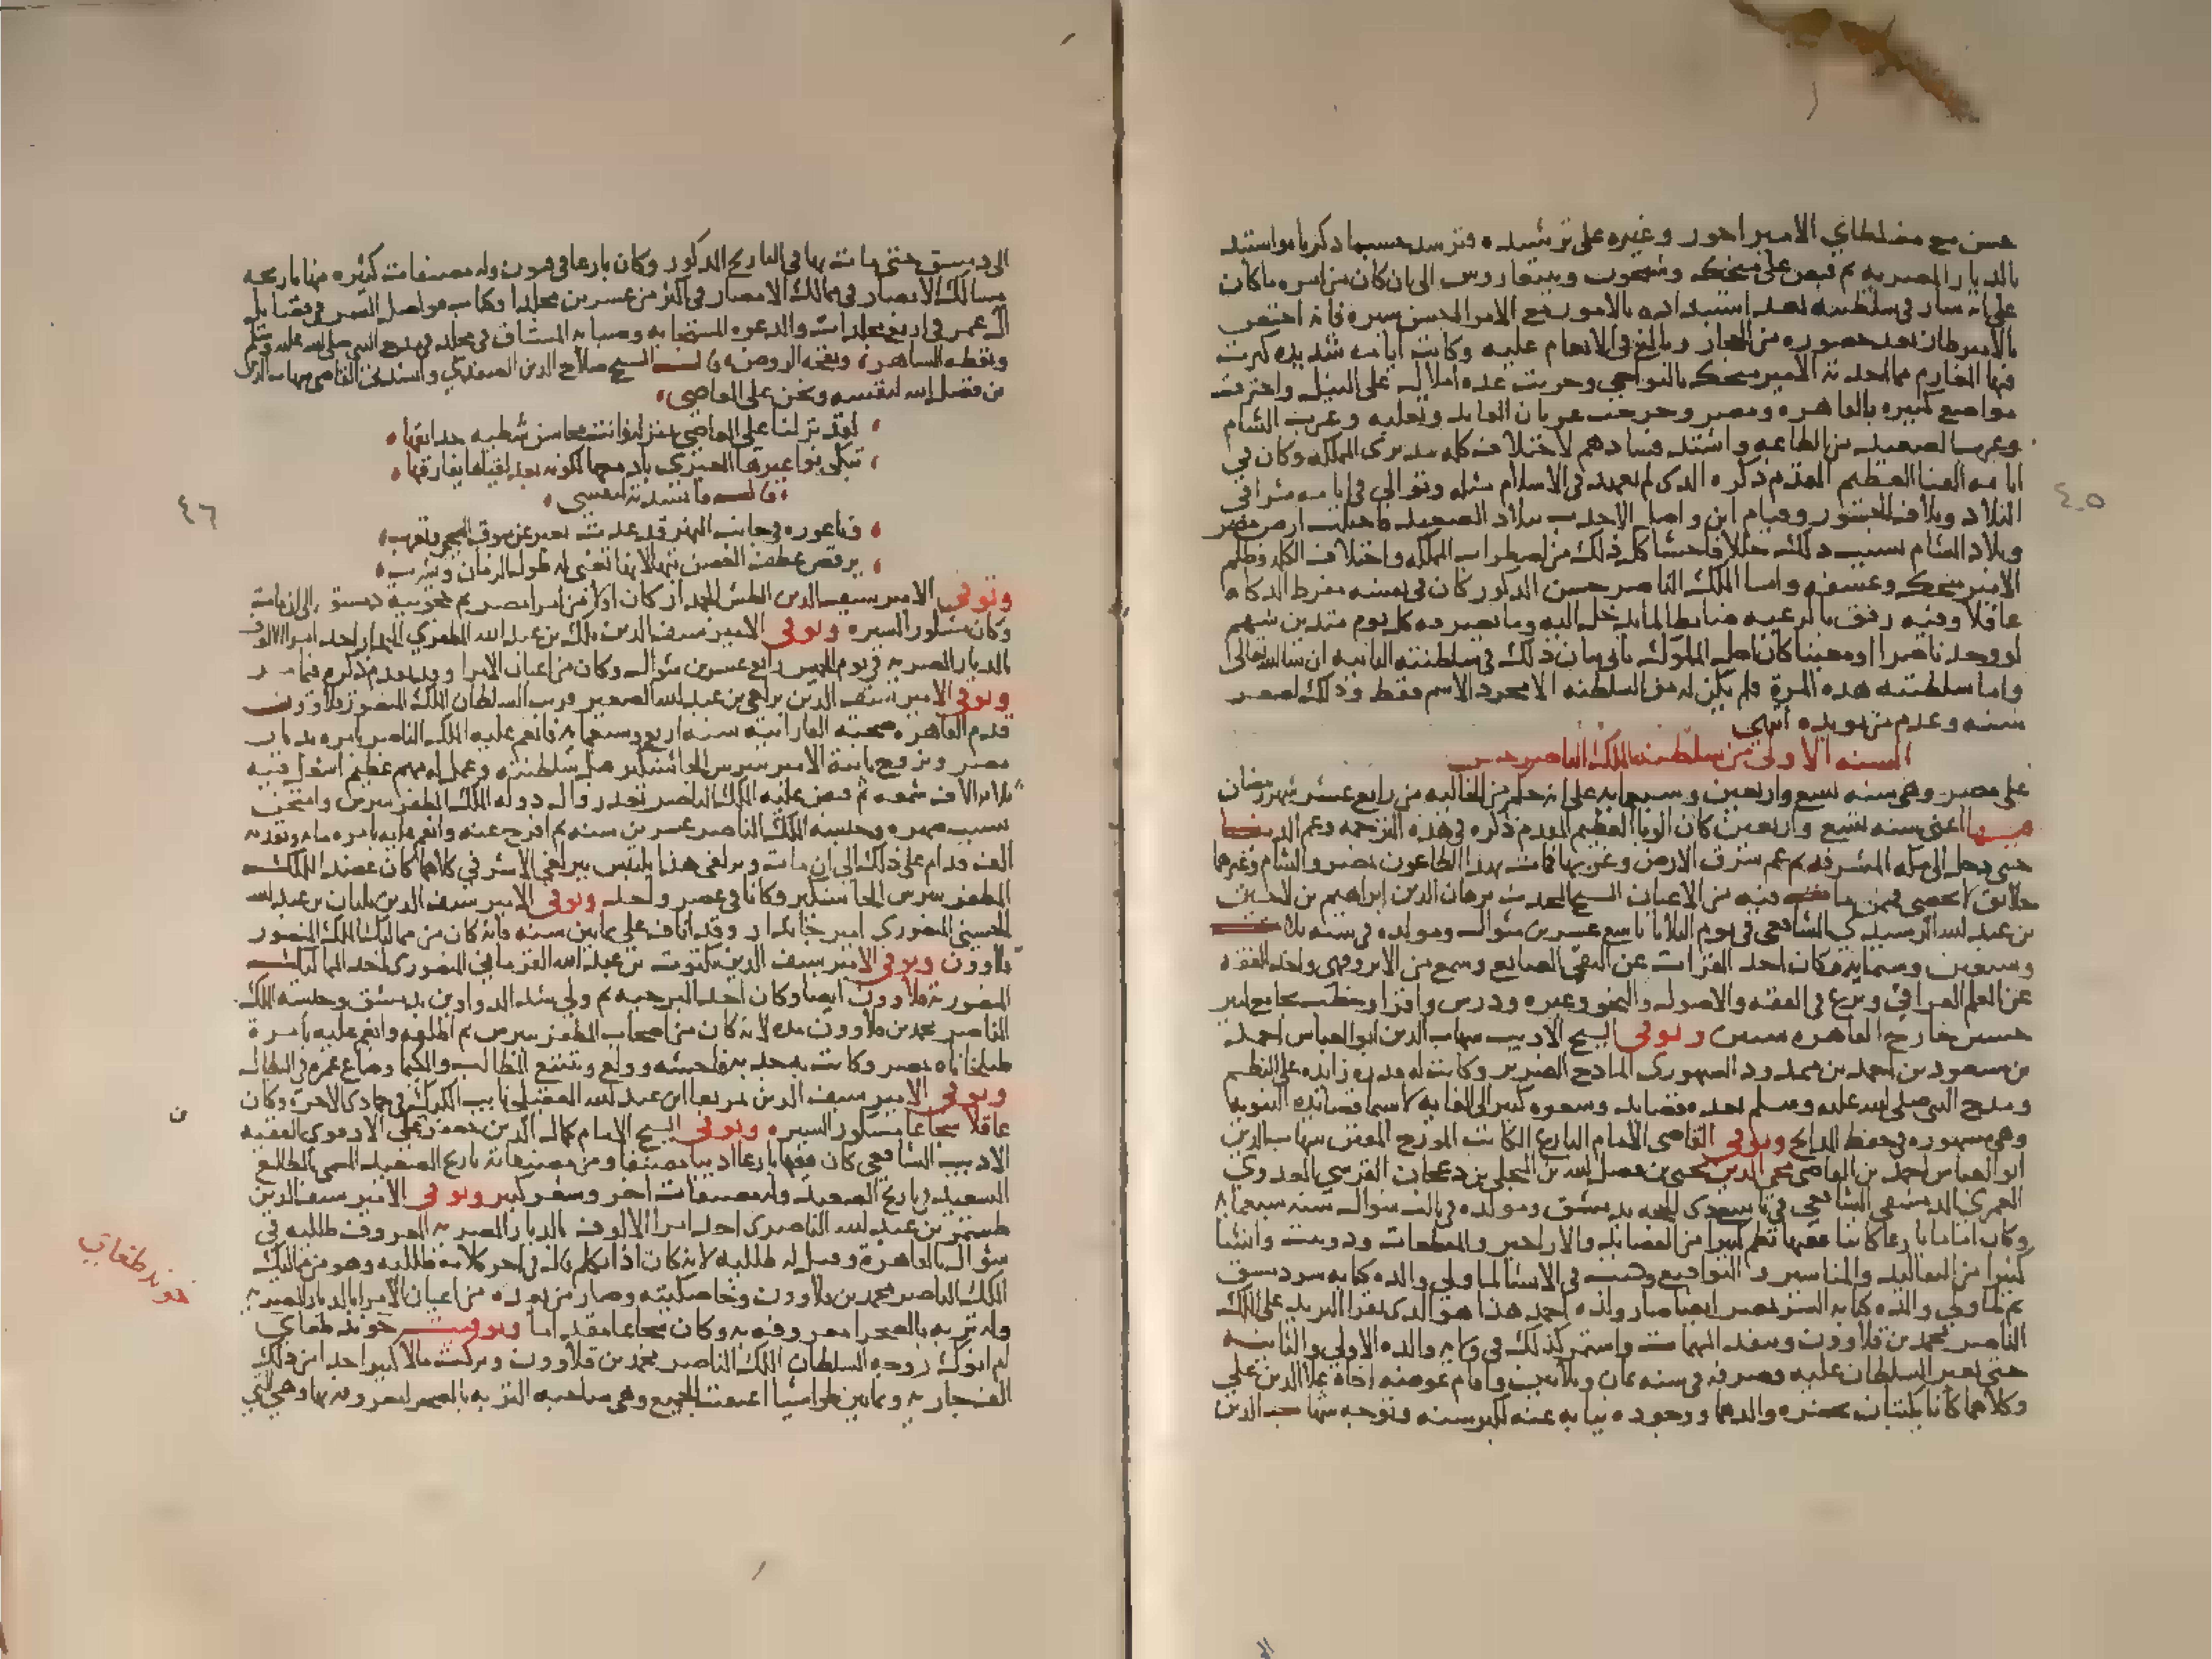 حسن مع مغلطاي الامير اخور وغيره على ترشيده وترشد حسبما ذكرناه واستبد
بالديار المصريه ثم قبض على منجك وشيخون وبيبغا روس الى ان كان من امره ما كان
على انه سار في سلطنته بعد استبداده بالامور مع الامرا احسن سيره فانه اختص
بالاميرطاز بعد حضوره من الحجاز وبالغ في الانعام عليه وكانت ايامه شديده كثرت
فيها المغارم مما احدثه الامير منجك بالنواحي وخربت عده املاك على النيل واحترقت
مواضع كثيره بالقاهره ومصر وخرجت عربان العايد وثعلبه وعرب الشام
وعرب الصعيد عن الطاعه واشتد فسادهم لاختلاف كلمه مدبرى المملكه وكان في
ايامه الفنا العظيم المقدم ذكره الدى لم يعهد في الاسلام مثله وتوالي في ايامه شراقي
البلاد وتلاف الجسور وقيام ابن واصل الاحدب ببلاد الصعيد فاختلت ارض مصر
وبلاد الشام بسبب ذلك خللا فاحشا كل ذلك من اضطراب المملكه واختلاف الكلمه وظلم
الامير منجك وعسفه واما الملك الناصر حسن المذكور كان في نفسه مفرط الدكاه
عاقلا وفيه رفق بالرعيه ضابطا لما يدخل اليه وما يصرفه كل يوم متدين شهم
لو وجد ناصرا او معينا كان اجل الملوك ياتي بيان ذلك في سلطنته الثانيه ان شا الله تعالى
واما سلطنته هذه المرة فلم يكن له من السلطنه الا مجرد الاسم فقط وذلك لصغر
سنه وعدم من يويده انتهي
السنه الاولى من سلطنه الملك الناصر حسن
على مصر وهي سنه تسع واربعين وسبعمايه على انه حكم من الخاليه من رابع عشر شهر رمضان
فيها اعني سنه تسع واربعين كان الوبا العظيم المقدم ذكره في هذه الترجمه وعم الدنيا
حتى دخل الى مكه المشرفه ثم عم شرق الارض وغربها فمات بهذا الطاعون بمصر والشام وغيرهما
خلايق لا تحصى فممن مات فيه من الاعيان الشيخ المحدث برهان الدين ابراهيم بن لاجين
بن عبد الله الرشيدي الشافعي في يوم الثلاثا تاسع عشرين شوال ومولده في سنه ثلاث
وسبعين وستمايه وكان اخد القراات عن التقي الصايغ وسمع من الابرقوهي واخد الفقه
عن العلم العراقي وبرع في الفقه والاصول والنحو وغيره ودرس واقرا وخطب بجامع امير
حسين خارج القاهره سنين وتوفي الشيخ الاديب شهاب الدين ابو العباس احمد
بن مسعود بن احمد بن ممدود السنهورى المادح الضرير وكانت له قدره زايده على النظم
ومدح النبي صلى الله عليه وسلم بعده قصايد وشعره كثير الى الغايه لا سيما قصايده النبويه
وهي مشهوره في حفظ المداح وتوفي القاضي الامام البارع الكاتب المورخ المفنن شهاب الدين
ابو العباس احمد بن القاضي محيي الدين يحيي بن فضل الله بن المجلي بن دعجان القرشي العدوي
العمري الدمشقي الشافعي في تاسع ذى الحجه بدمشق ومولده في ثالث شوال سنه سبعمايه
وكان اماما بارعا كاتبا فقيها نظم كثيرا من القصايد والاراجيز والمقطعات ودوبيت وانشا
كثيرا من التقاليد والمناشير والتواقيع وكتب في الانشا لما ولي والده كتابه سر دمشق
ثم لما ولي والده كتابه السر بمصر ايضا صار ولده احمد هذا هو الدى يقرا البريد على الملك
الناصر محمد بن قلاوون وينفد المهمات واستمر كذلك في ولايه والده الاولى والثانيه
حتى تغير السلطان عليه وصرفه في سنه ثمان وثلاثين واقام عوضه اخاه علا الدين علي
وكلاهما كانا يكتبان بحضره والدهما ووجوده نيابه عنه لكبر سنه وتوجه شهاب الدين
٤٥
الى دمشق حتى مات بها في التاريخ المذكور وكان بارعا في فنون وله مصنفات كثيره منها تاريخه
مسالك الابصار في ممالك الامصار في اكثر من عشرين مجلدا وكتاب فواضل السمر في فضايل
آل عمر في اربع مجلدات والدعوه المستجابه وصبابه المشتاق في مجلد في مدح النبي صلى الله عليه وسلم
ويقظه الساهرة ونفحه الروض قال الشيخ صلاح الدين الصفدي وانشدني القاضي شهاب الدين
بن فضل الله لنفسه ونحن على العاصي
لقد نزلنا على العاصي بمنزلة زانت محاسن شطيه حدايقها
تبكي نواعيرها العبرى بادمعها لكونه بعد لقياها يفارقها
قال فانشدته لنفسي
وناعوره في جانب النهر قد غدت تعبر عن شوق الشجي وتعرب
يرقص عطف الغصن تيها لانها تغني له طول الزمان ويشرب
وتوفي الامير سيف الدين اطلمش الجمدار كان اولا من امرا مصر ثم حجوبيه دمشق الى ان مات
وكان مشكور السيره وتوفي الامير سيف الدين بلك بن عبد الله المظفري الجمدار احد امرا الالوف
بالديار المصريه في يوم الخميس رابع عشرين شوال وكان من اعيان الامرا وقد تقدم ذكره فيما مر
وتوفي الامير سيف الدين برلغي بن عبد الله الصغير قريب السلطان الملك المنصور قلاوون
قدم القاهره صحبه القازانيه سنه اربع وسبعمايه فانعم عليه الملك الناصر بامره بديار
مصر وتزوج بابنة الامير بيبرس الجاشنكير قبل سلطنته وعمل له مهم عظيم اشعل فيه
ثلاثه الاف شمعه ثم قبض عليه الملك الناصر بعد زوال دوله الملك المظفر بيبرس وامتحن
بسبب صهره وحبسه الملك الناصر عشرين سنه ثم افرج عنه وانعم عليه بامره مايه وتقدمه
الف فدام على ذلك الى ان مات وبرلغي هذا يلتبس ببرلغي الاشرفي كلاهما كان عضد الملك
المظفر بيبرس الجاشنكير وكانا في عصر واحد وتوفي الامير سيف الدين بلبان بن عبد الله
الحسيني المنصوري امير جاندار وقد اناف على ثمانين سنه فانه كان من مماليك الملك المنصور
قلاوون وتوفي الامير سيف الدين بكتوت بن عبد الله القرماني المنصوري احد المماليك
المنصوريه قلاوون ايضا وكان احد البرجيه ثم ولي شد الدواوين بدمشق وحبسه الملك
الناصر محمد بن قلاوون مده لانه كان من اصحاب المظفر بيبرس ثم اطلقه وانعم عليه بامرة
طبلخاناه بمصر وكانت به حدبه فاحشه وولع بتتبع المطالب والكيميا وضاع عمره في البطال
وتوفي الامير سيف الدين تمربغا ابن عبد الله العقيلي نايب الكرك في جمادى الاخرة وكان
عاقلا شجاعا مشكور السيره وتوفي الشيخ الامام كمال الدين جعفر بن ثعلب الادفوى الفقيه
الاديب الشافعي كان فقيها بارعا اديبا مصنفا ومن مصنفاته تاريخ الصعيد المسمى الطالع
السعيد في تاريخ الصعيد وله مصنفات اخر وشعر كثير وتوفي الامير سيف الدين
طشتمر بن عبد الله الناصرى احد امرا الالوف بالديار المصريه المعروف طلليه في
شوال بالقاهرة وقيل له طلليه لانه كان اذا تكلم قال في اخر كلامه طلليه وهو من مماليك
الملك الناصر محمد بن قلاوون وخاصكيته وصار من بعده من اعيان الامرا بالديار المصريه
وله تربه بالصحرا معروفه به وكان شجاعا مقداما وتوفيت خوند طغاي
ام انوك زوجه السلطان الملك الناصر محمد بن قلاوون وتركت مالا كثيرا جدا من ذلك
الف جاريه وثمانين طواشيا اعتقت الجميع وهي صاحبه التربه بالصحرا معروفه بها وهي التي
٤٦
ن
خوند طغاي